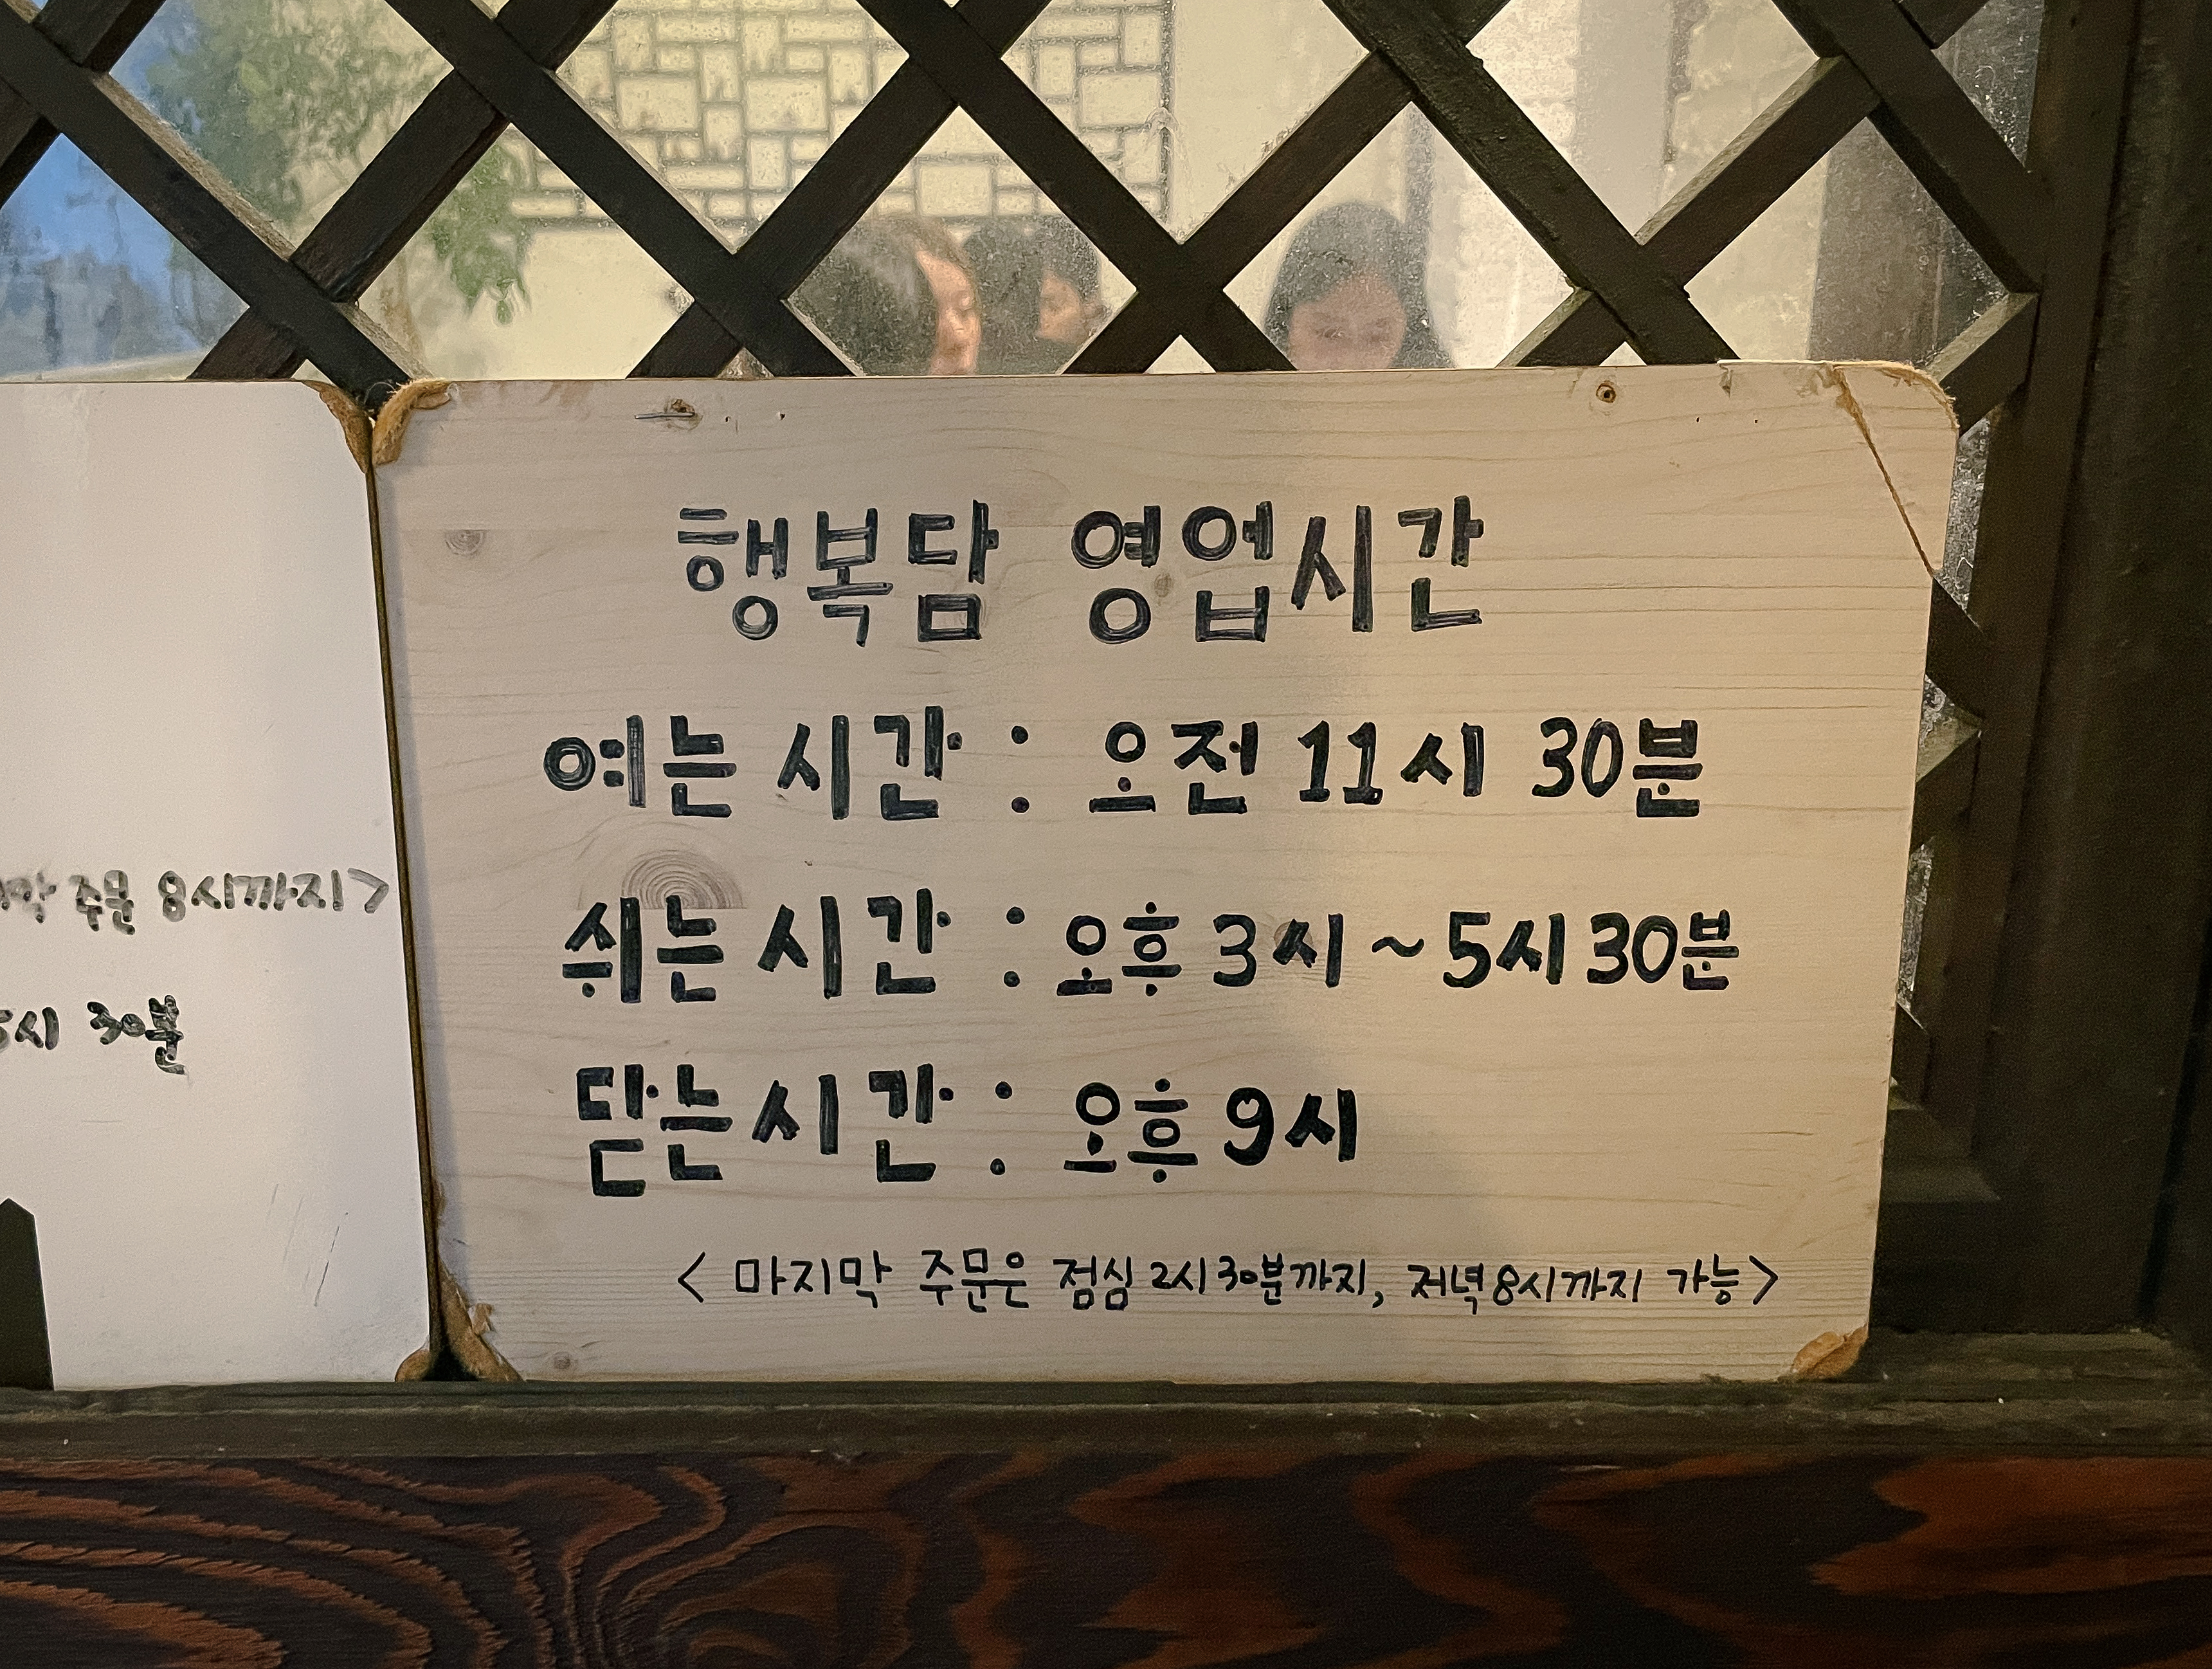 행복담 영업시간
여는 시간 : 오전 11시 30분
쉬는 시간 : 오후 3시 ~ 5시 30분
닫는 시간 : 오후 9시
< 마지막 주문은 점심 2시 30분까지, 저녁 8시까지 가능>
주문 8시까지>
30분